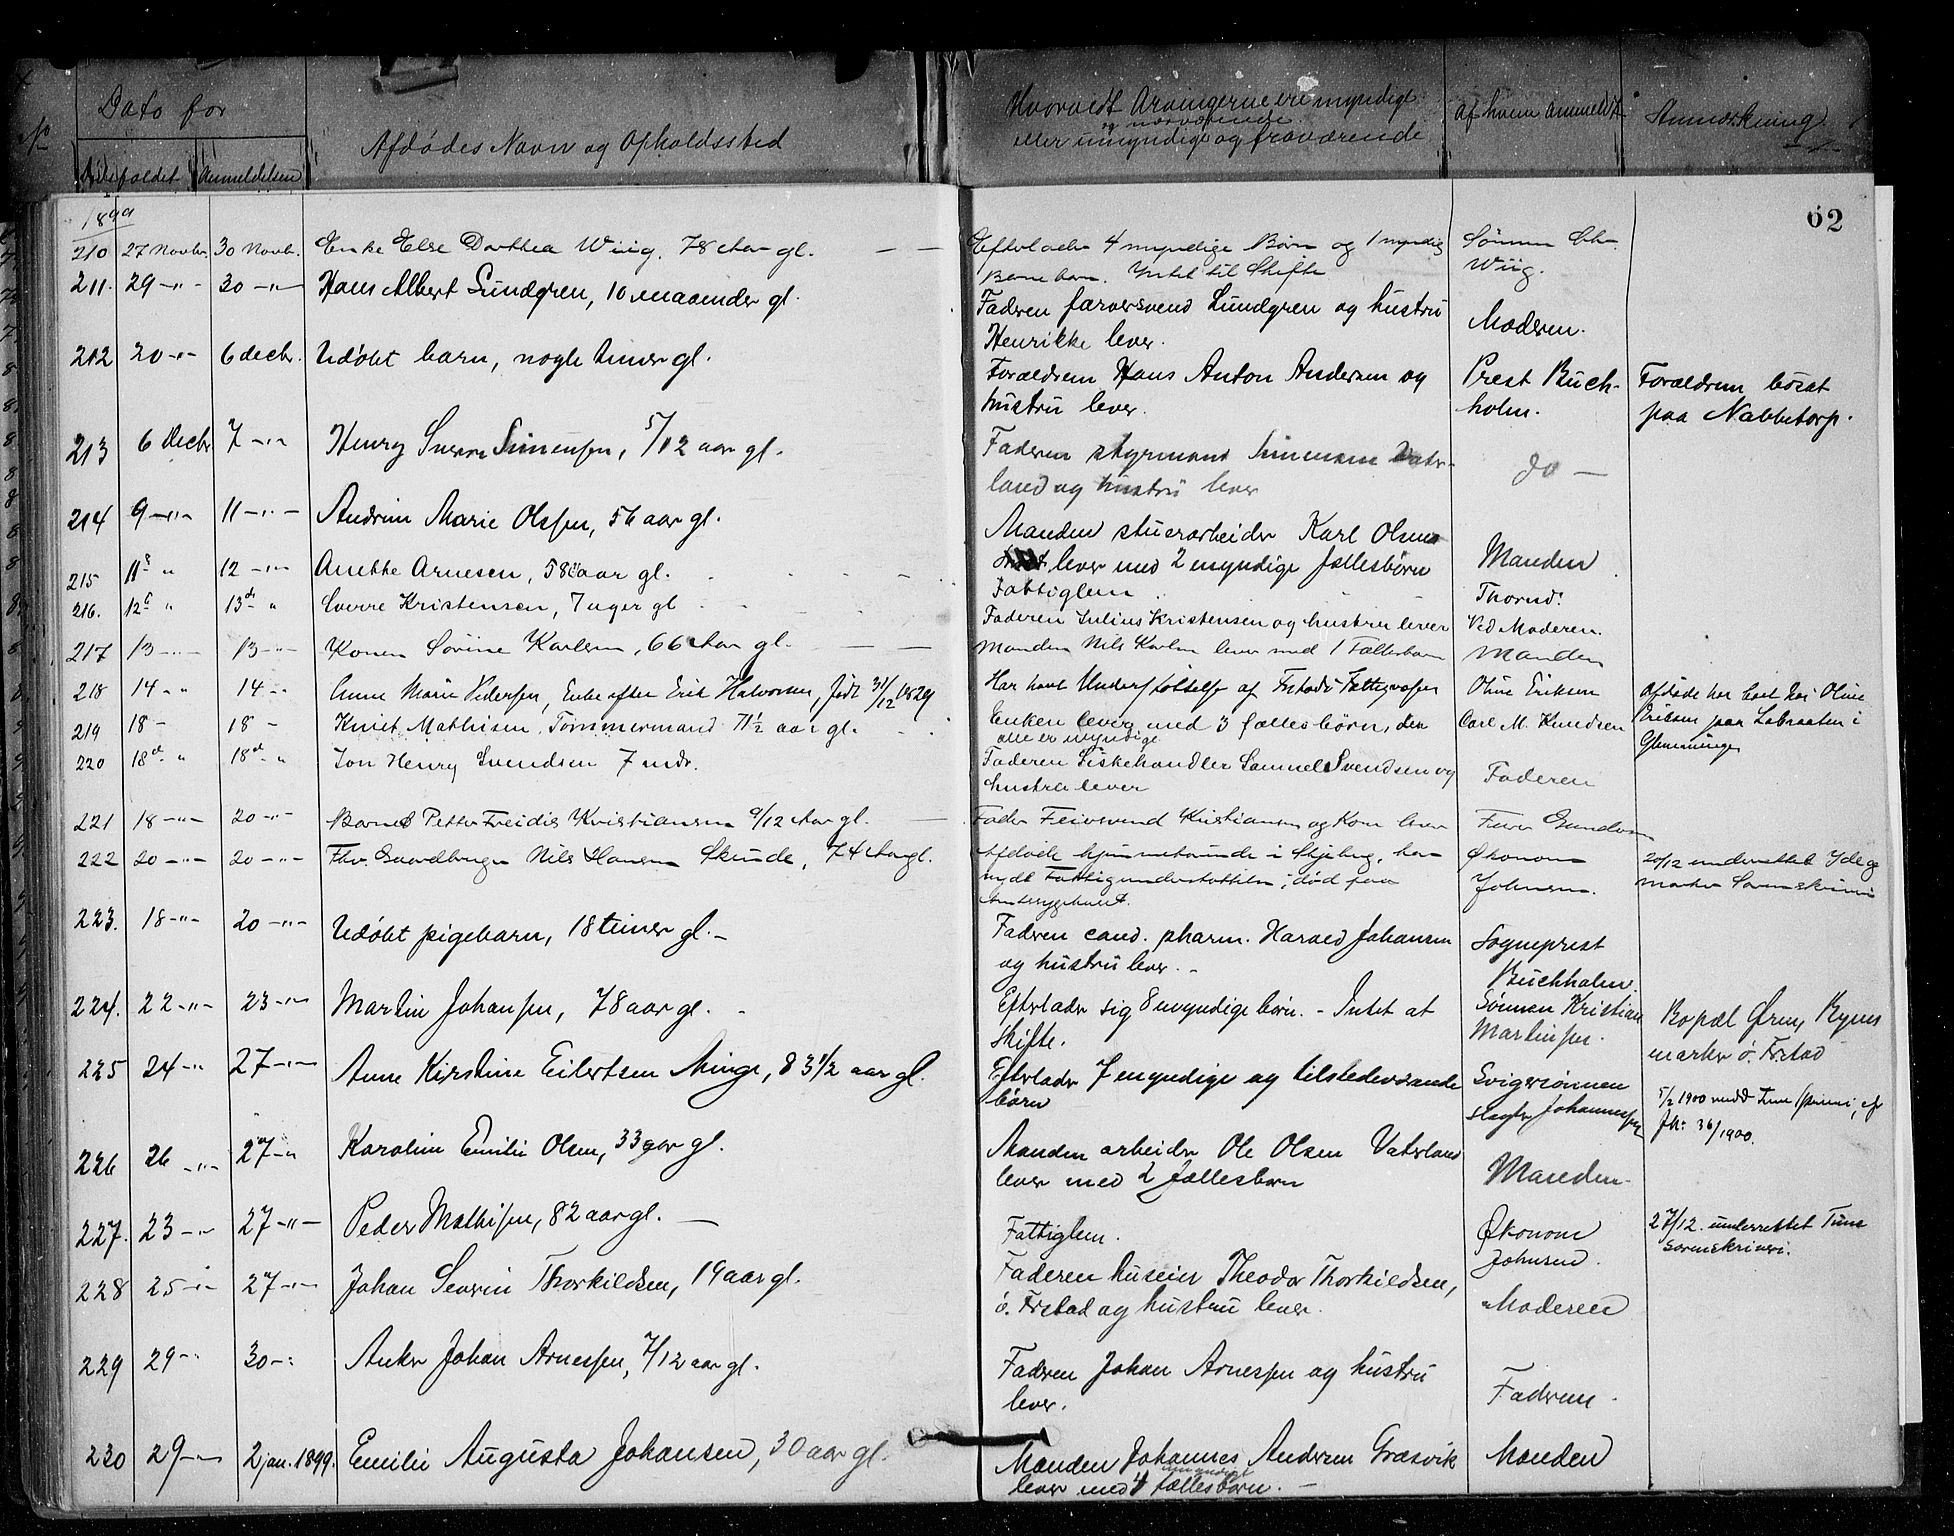 No
Dato for
Afdødes Navn og Opholdssted
Hvorvidt Arvingerne ere myndige
og nærværende
eller umyndige og fraværende
Af hvem anmeldt
Anmerkning
Dødsfaldet
Anmeldelsen
62
1899
210 27 Novbr. 30 Novbr. Enke Else Dorthea Wiig, 78 Aar gl. Efterlader 4 myndige Børn og 1 myndig Sønnen Chr.
Barnebarn. Intet til Skifte Wiig.
211. 29 -"- 30 -"- Hans Albert Lundgren, 10 maaender gl. Faderen farversvend Lundgren og hustru Moderen.
Henrikke lever.
212 20 -"- 6 decbr. Udøbt barn, nogle timer gl. Forældrene Hans Anton Andersen og Prest Buch- Forældrene bosat
hustru lever. holm. paa Nabbetorp.
213 6 Decbr 7 -"- Henry Sverre Simensen, 5/12 aar gl. Faderen styrmand Simensen Vater- do -
land og hustru lever
214 9 -"- 11 -"- Andrine Marie Olssen, 56 aar gl. Manden stuerarbeider Karl Olsen Manden
lever med 2 myndige fællesbørn
215 11 " 12 -"- Anethe Arnesen, 58 aar gl. Fattiglem Thorud.
216. 12 " 13 " Sverre Kristensen, 7 uger gl Faderen Julius Kristensen og hustru lever Ved Moderen.
217 13 -"- 13 -"- Konen Sørine Karlsen, 66 Aar gl. Manden Nils Karlsen lever med 1 Fællesbarn Manden
218 14 -"- 14 -"- Anne Marie Pedersen, Enke efter Erik Halvorsen, født 31/12 1829 Har havt Understøttelse af Fr.stads Fattigvæsen Oline Eriksen Afdøde har boet hos Oline
Eriksen paa Labraaten i
Glemminge
219 18 - 18 - Knut Mathisen, Tømmermand 71½ aar gl. Enken lever med 3 fællesbørn, der Carl M. Knudsen
alle er myndige
220 18 " 18 " Jon Henry Svendsen 7 mdr. Faderen Fiskehandler Samuel Svendsen og Faderen
hustru lever
221 18 -"- 20 -"- Barnet Petter Freidis Kristiansen 9/12 Aar gl. Fader Feiersvend Kristiansen og Kone lever
222 20 -"- 20 -"- Fhv. Gaardbruger Nils Hansen Skinde, 74 Aar gl. Afdøde hjemmehørende i Skjeberg, har Økonom 20/12 underrettet Idd og
nydt Fattigunderstøttelse, død paa Johnsen. Marker Sorenskriveri
Amtssygehuset.
223. 18 -"- 20 -"- Udøbt pigebarn, 18 timer gl. - Faderen cand. pharm. Harald Johansen Sogneprest
og hustru lever. - Buchholm.
224. 22 -"- 23 -"- Martin Johansen, 78 aar gl. Efterlader sig 8 myndige børn. - Intet at Sønnen Kristian Bopæl Øren,
skifte. Martinsen. marken ø. Fr.stad
225 24 -"- 27 -"- Anne Kirstine Eilertsen Minge, 83 1/2 aar gl. Efterlader 7 myndige og tilstedeværende Svigersønnen 5/2 1900
børn slagter Johannesen 36/1900.
226 26 -"- 27 -"- Karoline Emilie Olsen, 33 aar gl. Manden arbeider Ole Olsen Vaterland Manden
lever med 2 fællesbørn
227. 23 -"- 27 -"- Peder Mathisen, 82 aar gl. Fattiglem. Økonom 27/12. underrettet Tune
Johnsen. sorenskriveri.
228 25 -"- 27 -"- Johan Severin Thorkildsen, 19 aar gl. Faderen huseier Theodor Thorkildsen, Moderen
ø. Fr.stad og hustru lever.
229 29 -"- 30 -"- Anker Johan Arnessen, 7/12 aar gl. Faderen Johan Arnessen og hustru Faderen.
lever.
230 29 -"- 2 jan. 1899. Emilie Augusta Johansen, 30 aar gl. Manden Johannes Andersen Græsvik Manden
umyndige
lever med 4 fællesbørn. -